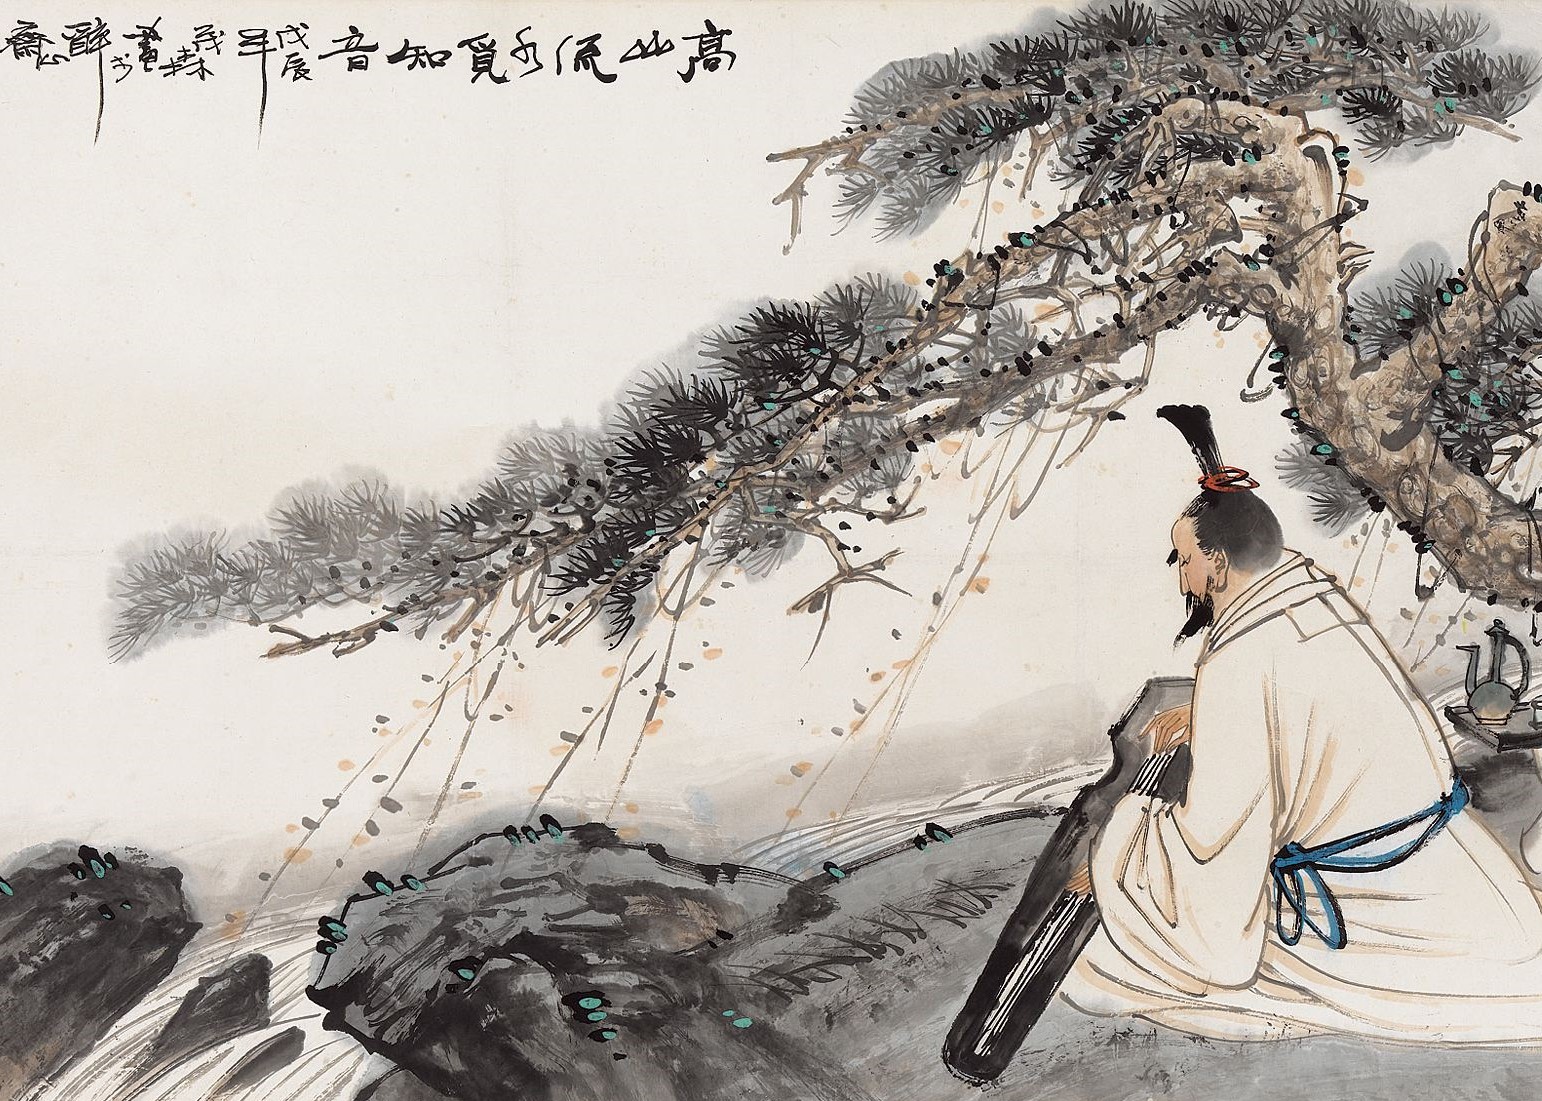 高山流水覓知音 戊辰年 茂林畫於醉心齋